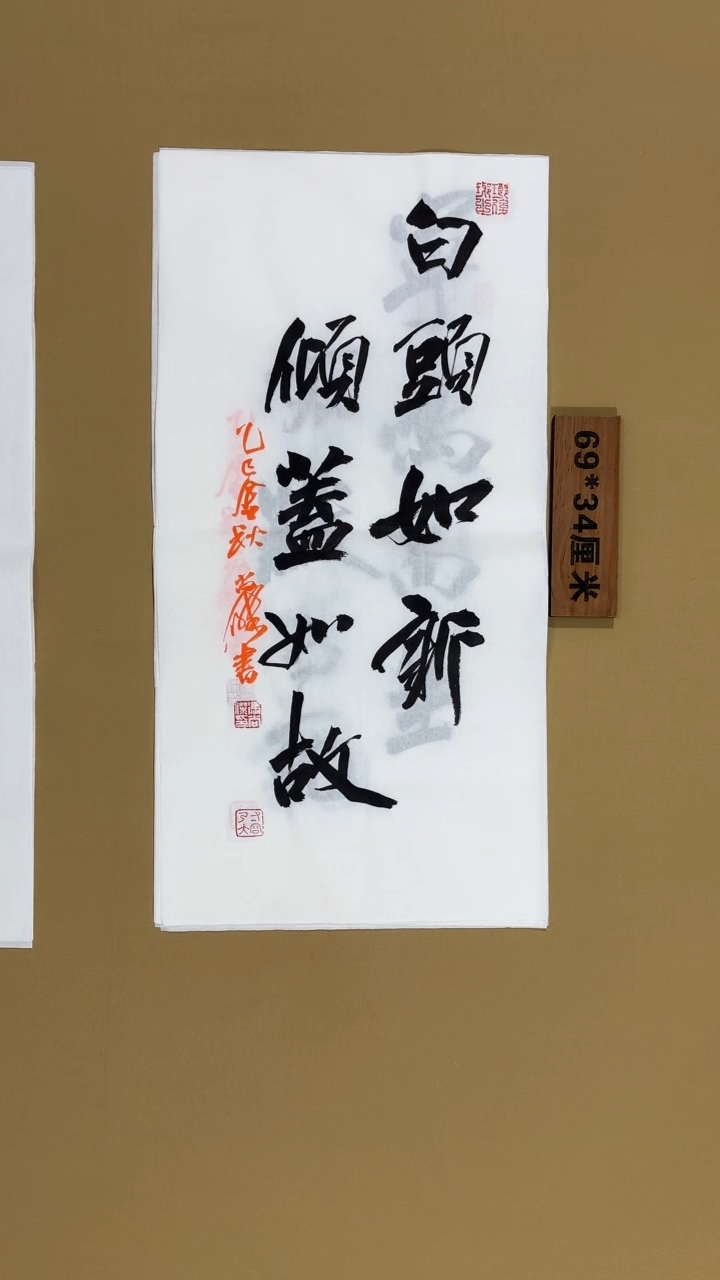 白頭如新
傾蓋如故
乙巳
秋
書
69*34厘米